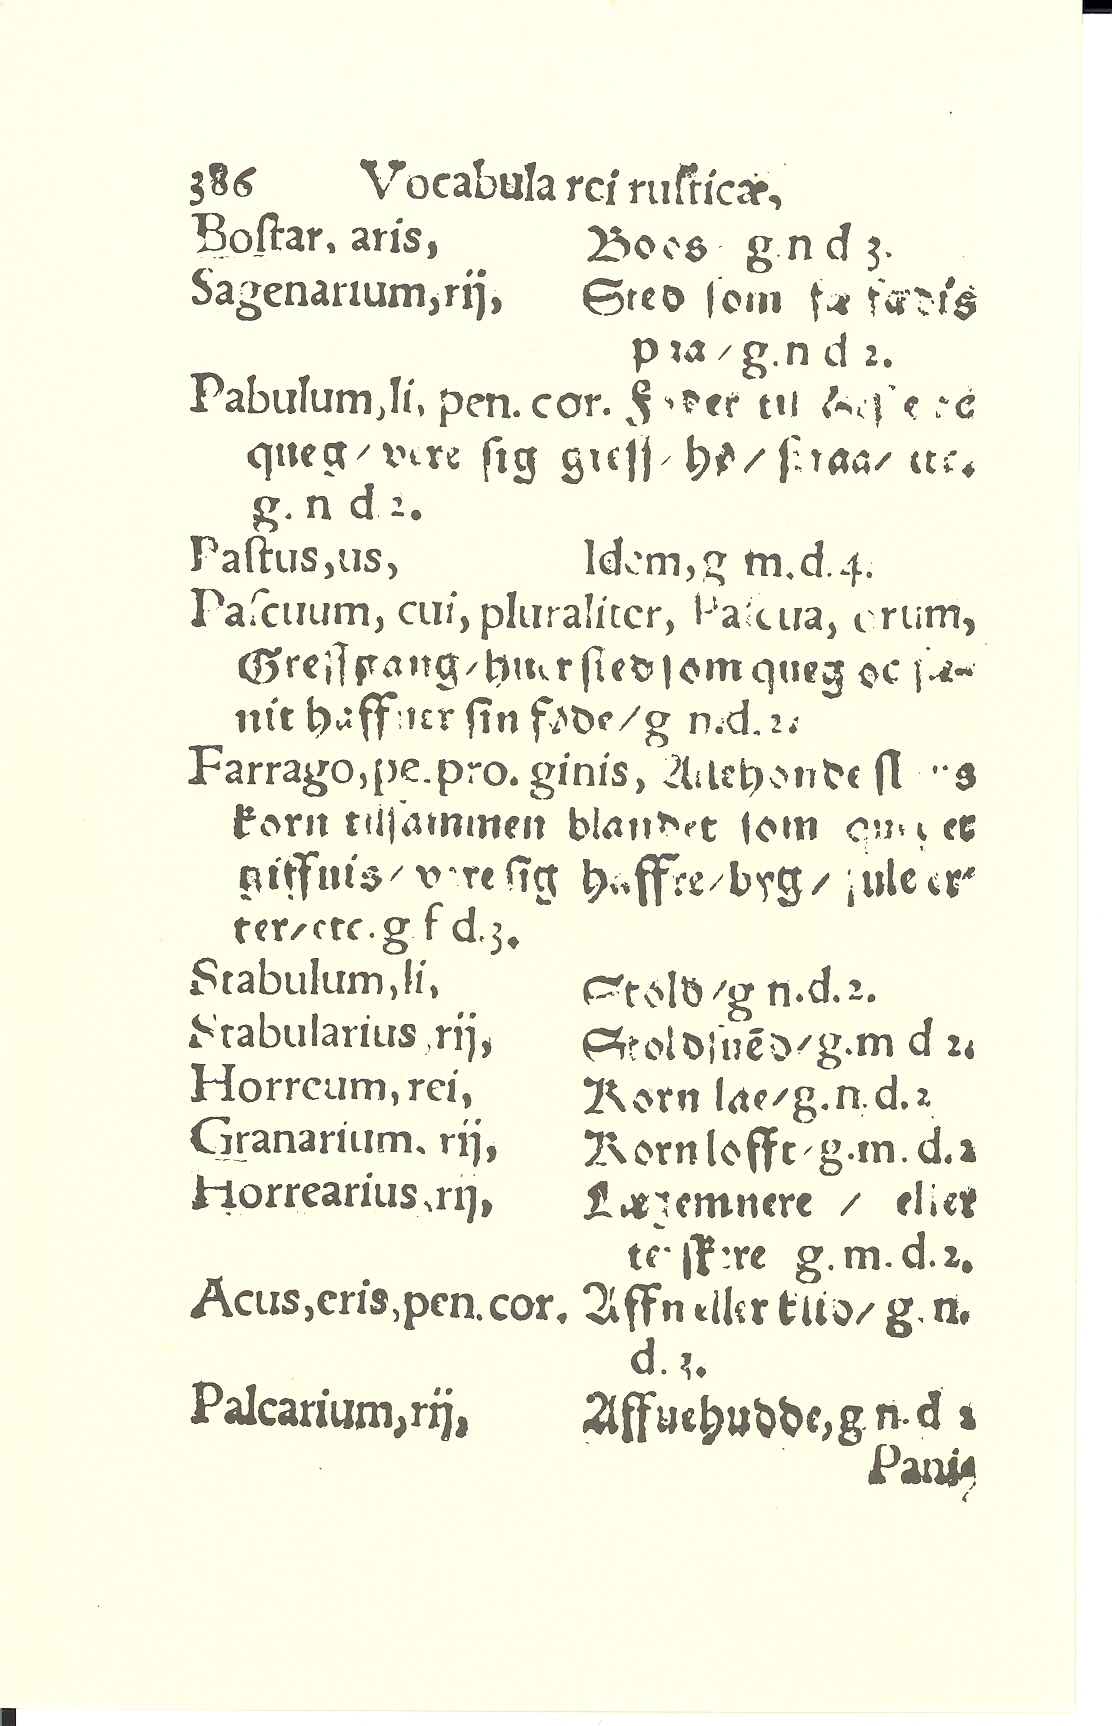 386 Vocabula rei rusticæ,
Bostar, aris, Boes g n d 3.
Sagenarium, rij, Sted som fæ fædis
paa / g. n d 2.
Pabulum, li, pen. cor. Foder til oc
queg / vere sig gress / hø / straa / etc.
g. n d 2.
Pastus, us, Idem, g m. d. 4.
Pascuum, cui, pluraliter, Pascua, orum,
Gressgang / huer sted som queg oc
nit haffuer sin føde / g n. d. 2.
Farrago, pe. pro. ginis, Allehonde
korn tilsammen blandet som queg et
giffuis / vere sig haffre / byg / er-
ter / etc. g f d. 3.
Stabulum, li, Stold / g n. d. 2.
Stabularius, rij, Stoldsuēd / g. m d 2.
Horreum, rei, Korn lae / g. n. d. 2
Granarium, rij, Korn lofft / g. m. d. 2
Horrearius, rij, eller
terskere g. m. d. 2.
Acus, eris, pen. cor. Affn eller / g. n.
d. 3.
Palearium, rij, Affuehudde, g n. d 2